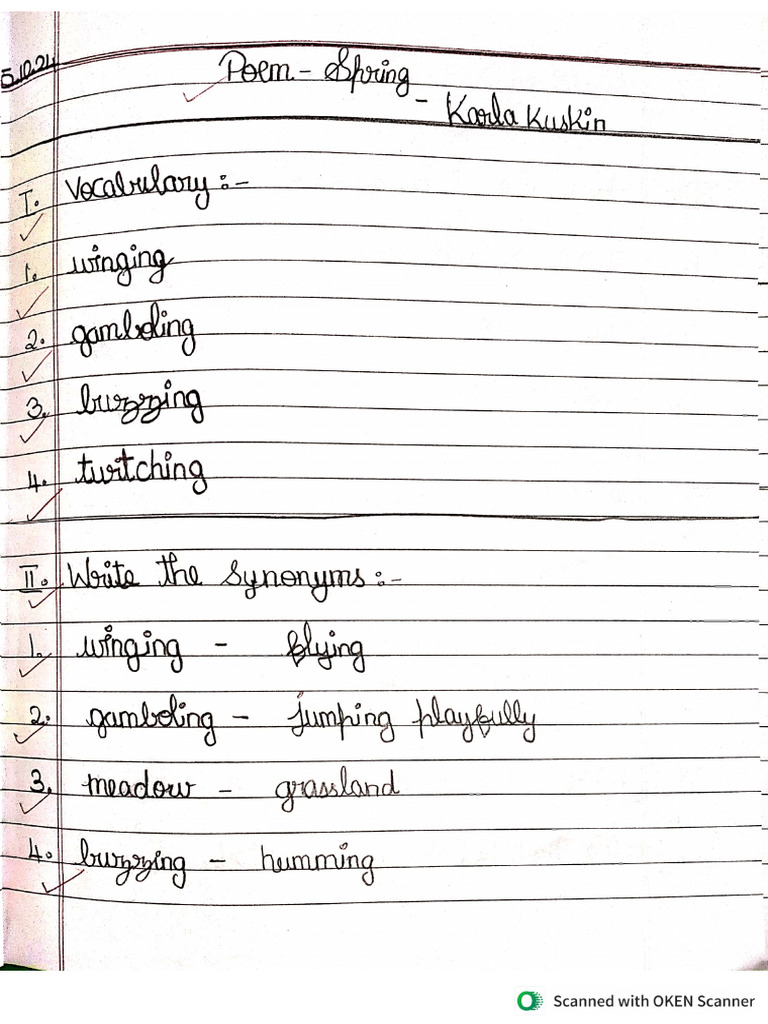 5.10.24
Poem - Spring
- Karla Kuskin
I. Vocabulary :-
1. winging
2. gamboling
3. buzzing
4. twitching
II. Write the Synonyms :-
1. winging - flying
2. gamboling - jumping playfully
3. meadow - grassland
4. buzzing - humming
Scanned with OKEN Scanner